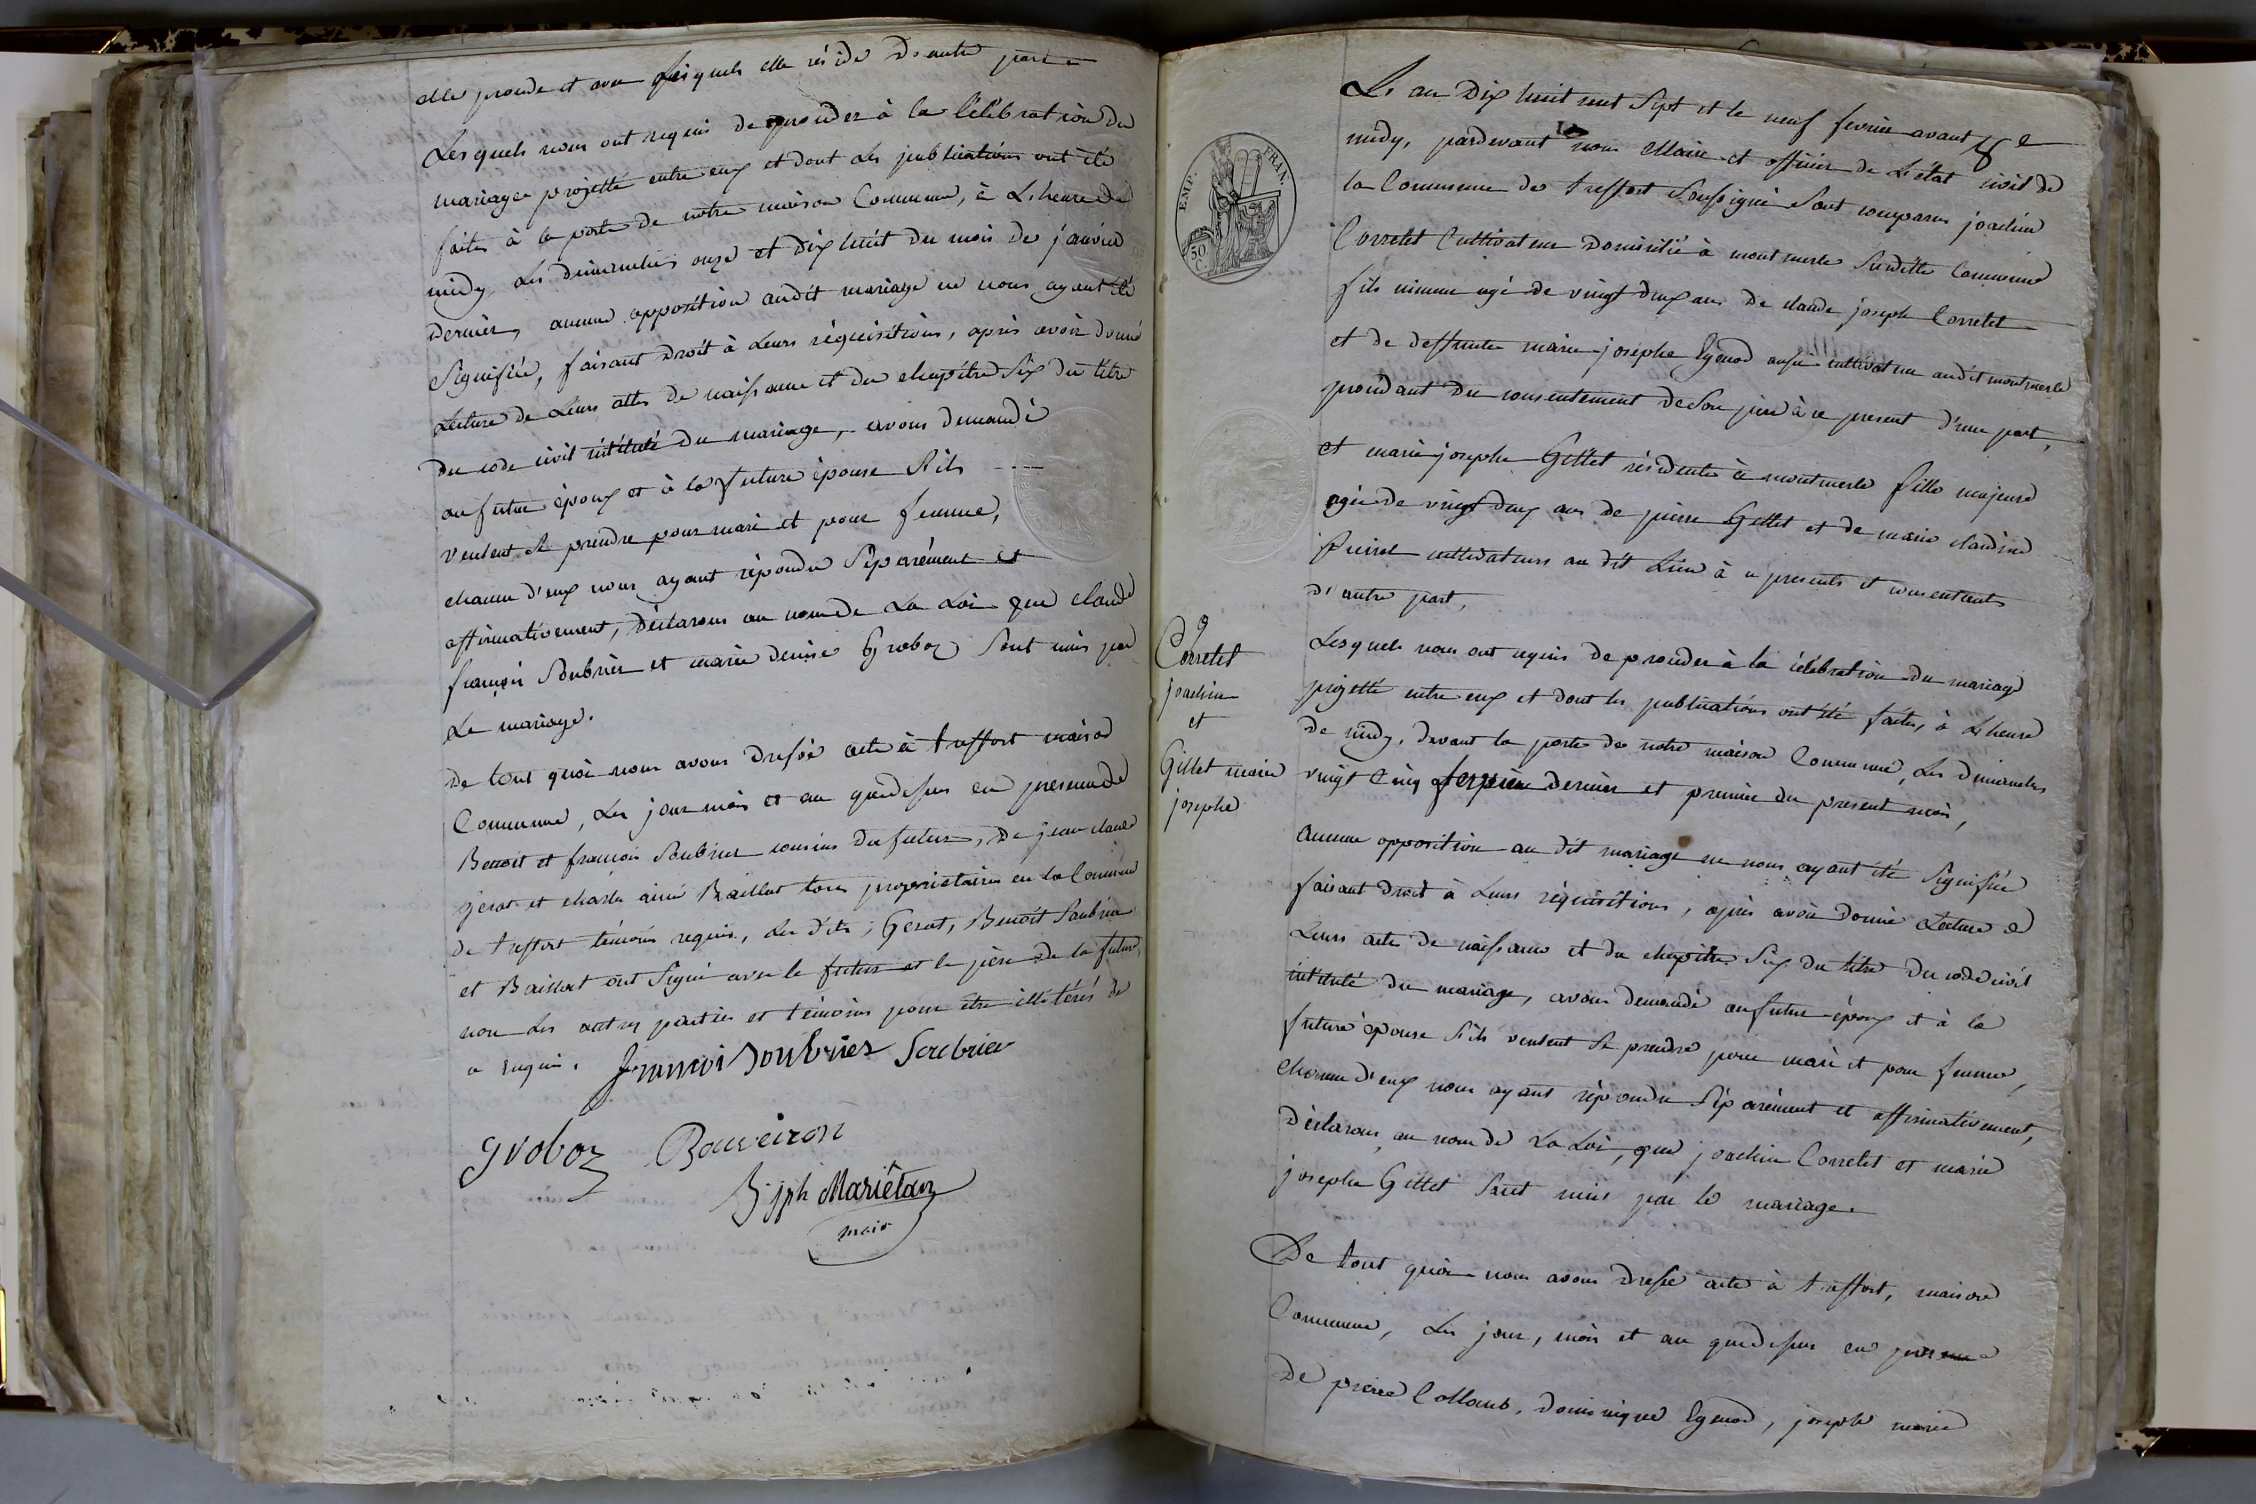 elle procede et avec lesquels elle réside D'autre part
Lesquels nous ont requis de proceder à la Célébration du
mariage projetté entre eux et dont les publications ont été
faites à la porte de notre maison Commune, à L'heure de
midy, Les dimanches onze et dix huit du mois de janvier
dernier, aucune opposition audit mariage ne nous ayant été
Signifiée, faisant Droit à Leurs réquisitions, après avoir donné
Lecture de Leurs actes de naissance et du chapitre Six du titre
du code civil intitulé Du mariage, avons demandé
au futur époux et à la future épouse S'ils
veulent se prendre pour mari et pour femme,
chacun d'eux nous ayant répondu Séparément et
affirmativement, Déclarons au nom de La Loi que claude
françois Soubrier et marie denise Groboz Sont unis par
Le mariage.
De tout quoi nous avons Dressé acte à treffort maison
Commune, Les jour mois et an que dessus en presence de
Benoit et françois Soubrier cousins du futur, De jean claude
gerat et charle aimé Raillat tous proprietaires en la Commune
de treffort témoins requis, Les dits, Gerat, Benoit Soubrier
et Baillat ont Signé avec le futur et le père de la future,
non Les autres parties et témoins pour être illitérés de
ce requis. françois Soubrier Soubrier
groboz Bouveiron
B. jph Mariétan
maire
EMP. FRAN.
50 C.
L'an Dix huit cent Sept et le neuf fevrier avant
midy, pardevant nous Maire et officier de L'état civil de
la Commune de treffort Soussigné Sont comparus joachim
Corretel Cultivateur Domicilié à montmerle Susditte Commune
fils mineur agé de vingt deux ans De claude joseph Corretel
et de deffunte marie josephe Egenod aussi cultivateur audit montmerle
procédant du consentement de Son père à ce present D'une part,
et marie josephe Gillet résidente à montmerle fille majeure
agée de vingt deux ans de pierre Gillet et de marie claudine
Puivet cultivateurs au dit Lieu à ce presents et consentents
D'autre part,
Lesquels nous ont requis de proceder à la célébration du mariage
projetté entre eux et dont les publications ont été faites, à L'heure
de midy, devant la porte de notre maison Commune, Les Dimanches
vingt Cinq janvier dernier et premier du present mois,
Aucune opposition au dit mariage ne nous ayant été Signifiée
faisant Droit à Leurs réquisitions, après avoir Donné Lecture de
Leurs acte de naissance et du chapitre Six du titre Du code civil
intitulé du mariage, avons demandé au futur époux et à la
future épouse S'ils veulent se prendre pour mari et pour femme,
Chacun d'eux nous ayant répondu Séparément et affirmativement,
Déclarons au nom de La Loi, que joachim Corretel et marie
josephe Gillet Sont unis par le mariage.
De tout quoi nous avons Dressé acte à treffort, maison
Commune, Les jour, mois et an que dessus en presence
De pierre Collomb, dominique Egenod, joseph marie
9
Corretel
joachim
et
Gillet marie
josephe